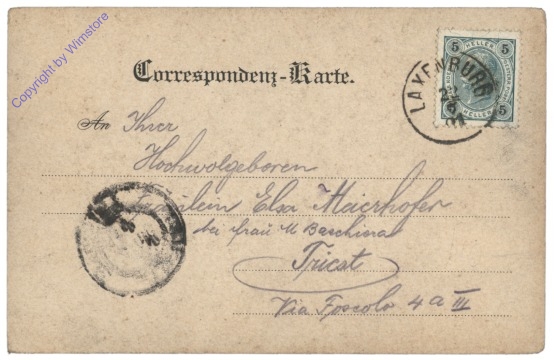 Copyright by Wimstore
Correspondenz-Karte.
5 HELLER 5
LAXENBURG
5 HELLER 5
An Ihrer
Hochwolgeboren
Fräulein Elsa Maierhofer
bei Frau M Baschiera
Triest
Via Foscolo 4a III